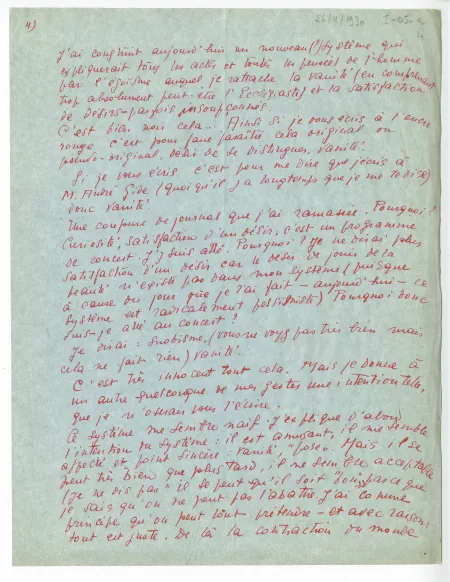 4)
26/4/1930
J'ai construit aujourd'hui un nouveau (?) système qui
expliquerait tous les actes et toutes les pensées de l'homme
par l'égoïsme auquel je rattache la vanité (en comprenant
trop absolument peut-être l'Ecclésiaste) et la satisfaction
de désirs parfois insoupçonnés.
C'est bien cela... Ainsi si je vous écris à l'encre
rouge c'est pour faire paraître cela original ou
pseudo-original, désir de se distinguer, vanité!
Si je vous écris c'est pour me dire que j'écris à
M. André Gide (quoiqu'il y a longtemps que je me le dise)
donc vanité!
Une coupure de journal que j'ai ramassée. Pourquoi?
Curiosité, satisfaction d'un désir, c'est un programme
de concert. J'y suis allé. Pourquoi? Je ne dirai plus
satisfaction d'un désir car le désir de jouir de la
beauté n'existe pas dans mon système (puisque
à cause du jour que je l'ai fait - aujourd'hui - ce
système est radicalement pessimiste) Pourquoi donc
suis-je allé au concert?
Je dirai: snobisme, (vous ne voyez pas très bien mais
cela ne fait rien) vanité!
C'est très innocent tout cela. Mais je donne à
un autre quelconque de mes gestes une intention telle,
que je n'oserais vous l'écrire.
Ce système me semble naïf. J'explique d'abord
l'intention du système: il est amusant, il me semble
affecté et point sincère: vanité, "pose". Mais il se
peut très bien que plus tard, il me semble acceptable
(je ne dis pas "il se peut qu'il soit bon" parce que
je sais qu'on ne peut pas l'abattre. J'ai comme
principe qu'on peut tout prétendre - et avec raison:
tout est juste. De là la contraction du monde